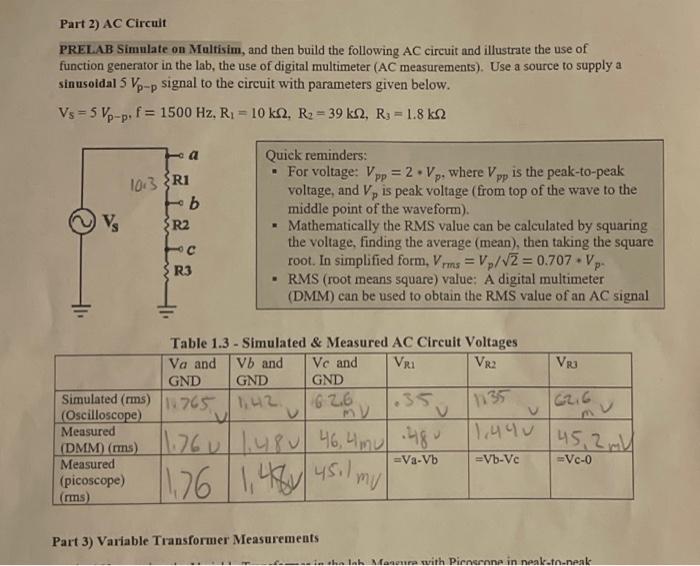 Part 2) AC Circuit
PRELAB Simulate on Multisim, and then build the following AC circuit and illustrate the use of
function generator in the lab, the use of digital multimeter (AC measurements). Use a source to supply a
sinusoidal 5 Vp−p signal to the circuit with parameters given below.
VS = 5 Vp−p, f = 1500 Hz, R1 = 10 kΩ, R2 = 39 kΩ, R3 = 1.8 kΩ
a
10.3 R1
b
Vs
R2
C
R3
Quick reminders:
▪ For voltage: Vpp = 2 * Vp, where Vpp is the peak-to-peak
voltage, and Vp is peak voltage (from top of the wave to the
middle point of the waveform).
▪ Mathematically the RMS value can be calculated by squaring
the voltage, finding the average (mean), then taking the square
root. In simplified form, Vrms = Vp/√2 = 0.707 * Vp.
▪ RMS (root means square) value: A digital multimeter
(DMM) can be used to obtain the RMS value of an AC signal
Table 1.3 - Simulated & Measured AC Circuit Voltages
Va and Vb and Vc and VR1 VR2 VR3
GND GND GND
Simulated (rms) 1.765 V 1.42 V 62.6 mV .35 V 1.35 V 62.6 mV
(Oscilloscope)
Measured
(DMM) (rms) 1.76 V 1.48 V 46.4 mV .48 V 1.44 V 45.2 mV
Measured =Va-Vb =Vb-Vc =Vc-0
(picoscope) 1.76 1.48 V 45.1 mV
(rms)
Part 3) Variable Transformer Measurements
in the lab Measure with Picoscope in peak-to-peak